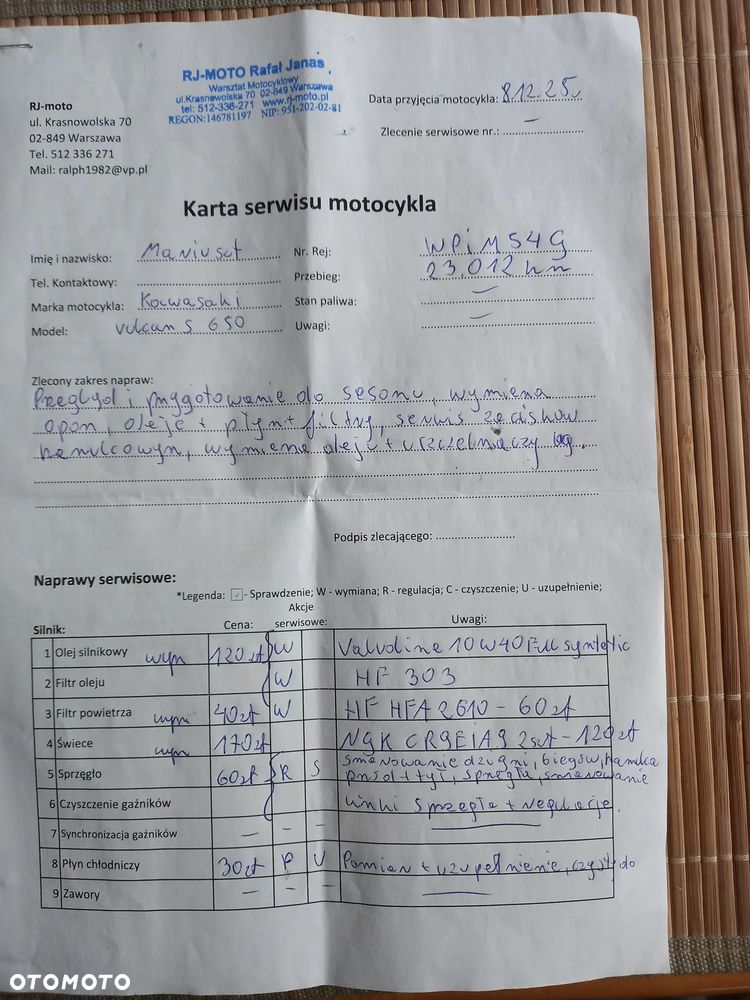 RJ-moto
ul. Krasnowolska 70
02-849 Warszawa
Tel. 512 336 271
Mail: ralph1982@vp.pl
RJ-MOTO Rafał Janas
Warsztat Motocyklowy
ul.Krasnowolska 70 02-849 Warszawa
tel: 512-336-271 www.rj-moto.pl
REGON:146781197 NIP: 951-202-02-81
Data przyjęcia motocykla: 8.12.25
Zlecenie serwisowe nr.: –
Karta serwisu motocykla
Imię i nazwisko: Mariusz
Tel. Kontaktowy:
Marka motocykla: Kawasaki
Model: vulcan S 650
Nr. Rej: WPiM54G
Przebieg: 23.012 km
Stan paliwa: –
Uwagi: –
Zlecony zakres napraw:
Przegląd i przygotowanie do sesonu, wymiena
opon, oleje + płyn + filtry, serwis zacisków
hamulcowyn, wymiena oleju + uszczelniaczy lag.
Podpis zlecającego:
Naprawy serwisowe:
*Legenda: ✓ - Sprawdzenie; W - wymiana; R - regulacja; C - czyszczenie; U - uzupełnienie;
Silnik: Cena: Akcje serwisowe: Uwagi:
1 Olej silnikowy wym 120 zł W Valvoline 10W40 Full syntetic
2 Filtr oleju W HF 303
3 Filtr powietrza wym 40zł W HF HFA 2610 - 60zł
4 Świece wym 170zł NGK CR9EIA9 2szt - 120zł
5 Sprzęgło 60zł R S smarowanie dzwigni, biegów, hamulca
przód + tył, sprzęgła, smarowanie
6 Czyszczenie gaźników linki sprzęgła + regulacje.
7 Synchronizacja gaźników – – –
8 Płyn chłodniczy 30zł P U Pomiar + uzupełnienie, do
9 Zawory – – –
OTOMOTO